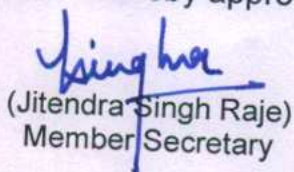 by appro
(Jitendra Singh Raje)
Member Secretary